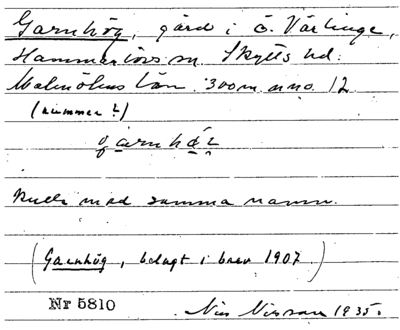 Garnhög, gård i ö. Värlinge,
Hammarlövs sn. Skytts hd.
Malmöhus län. 300 m. nno. 12
(nummer?)
Kulle med samma namn.
(Garnhög, belagt i brev 1907.)
Nr 5810 Nils Nilsson 1935.